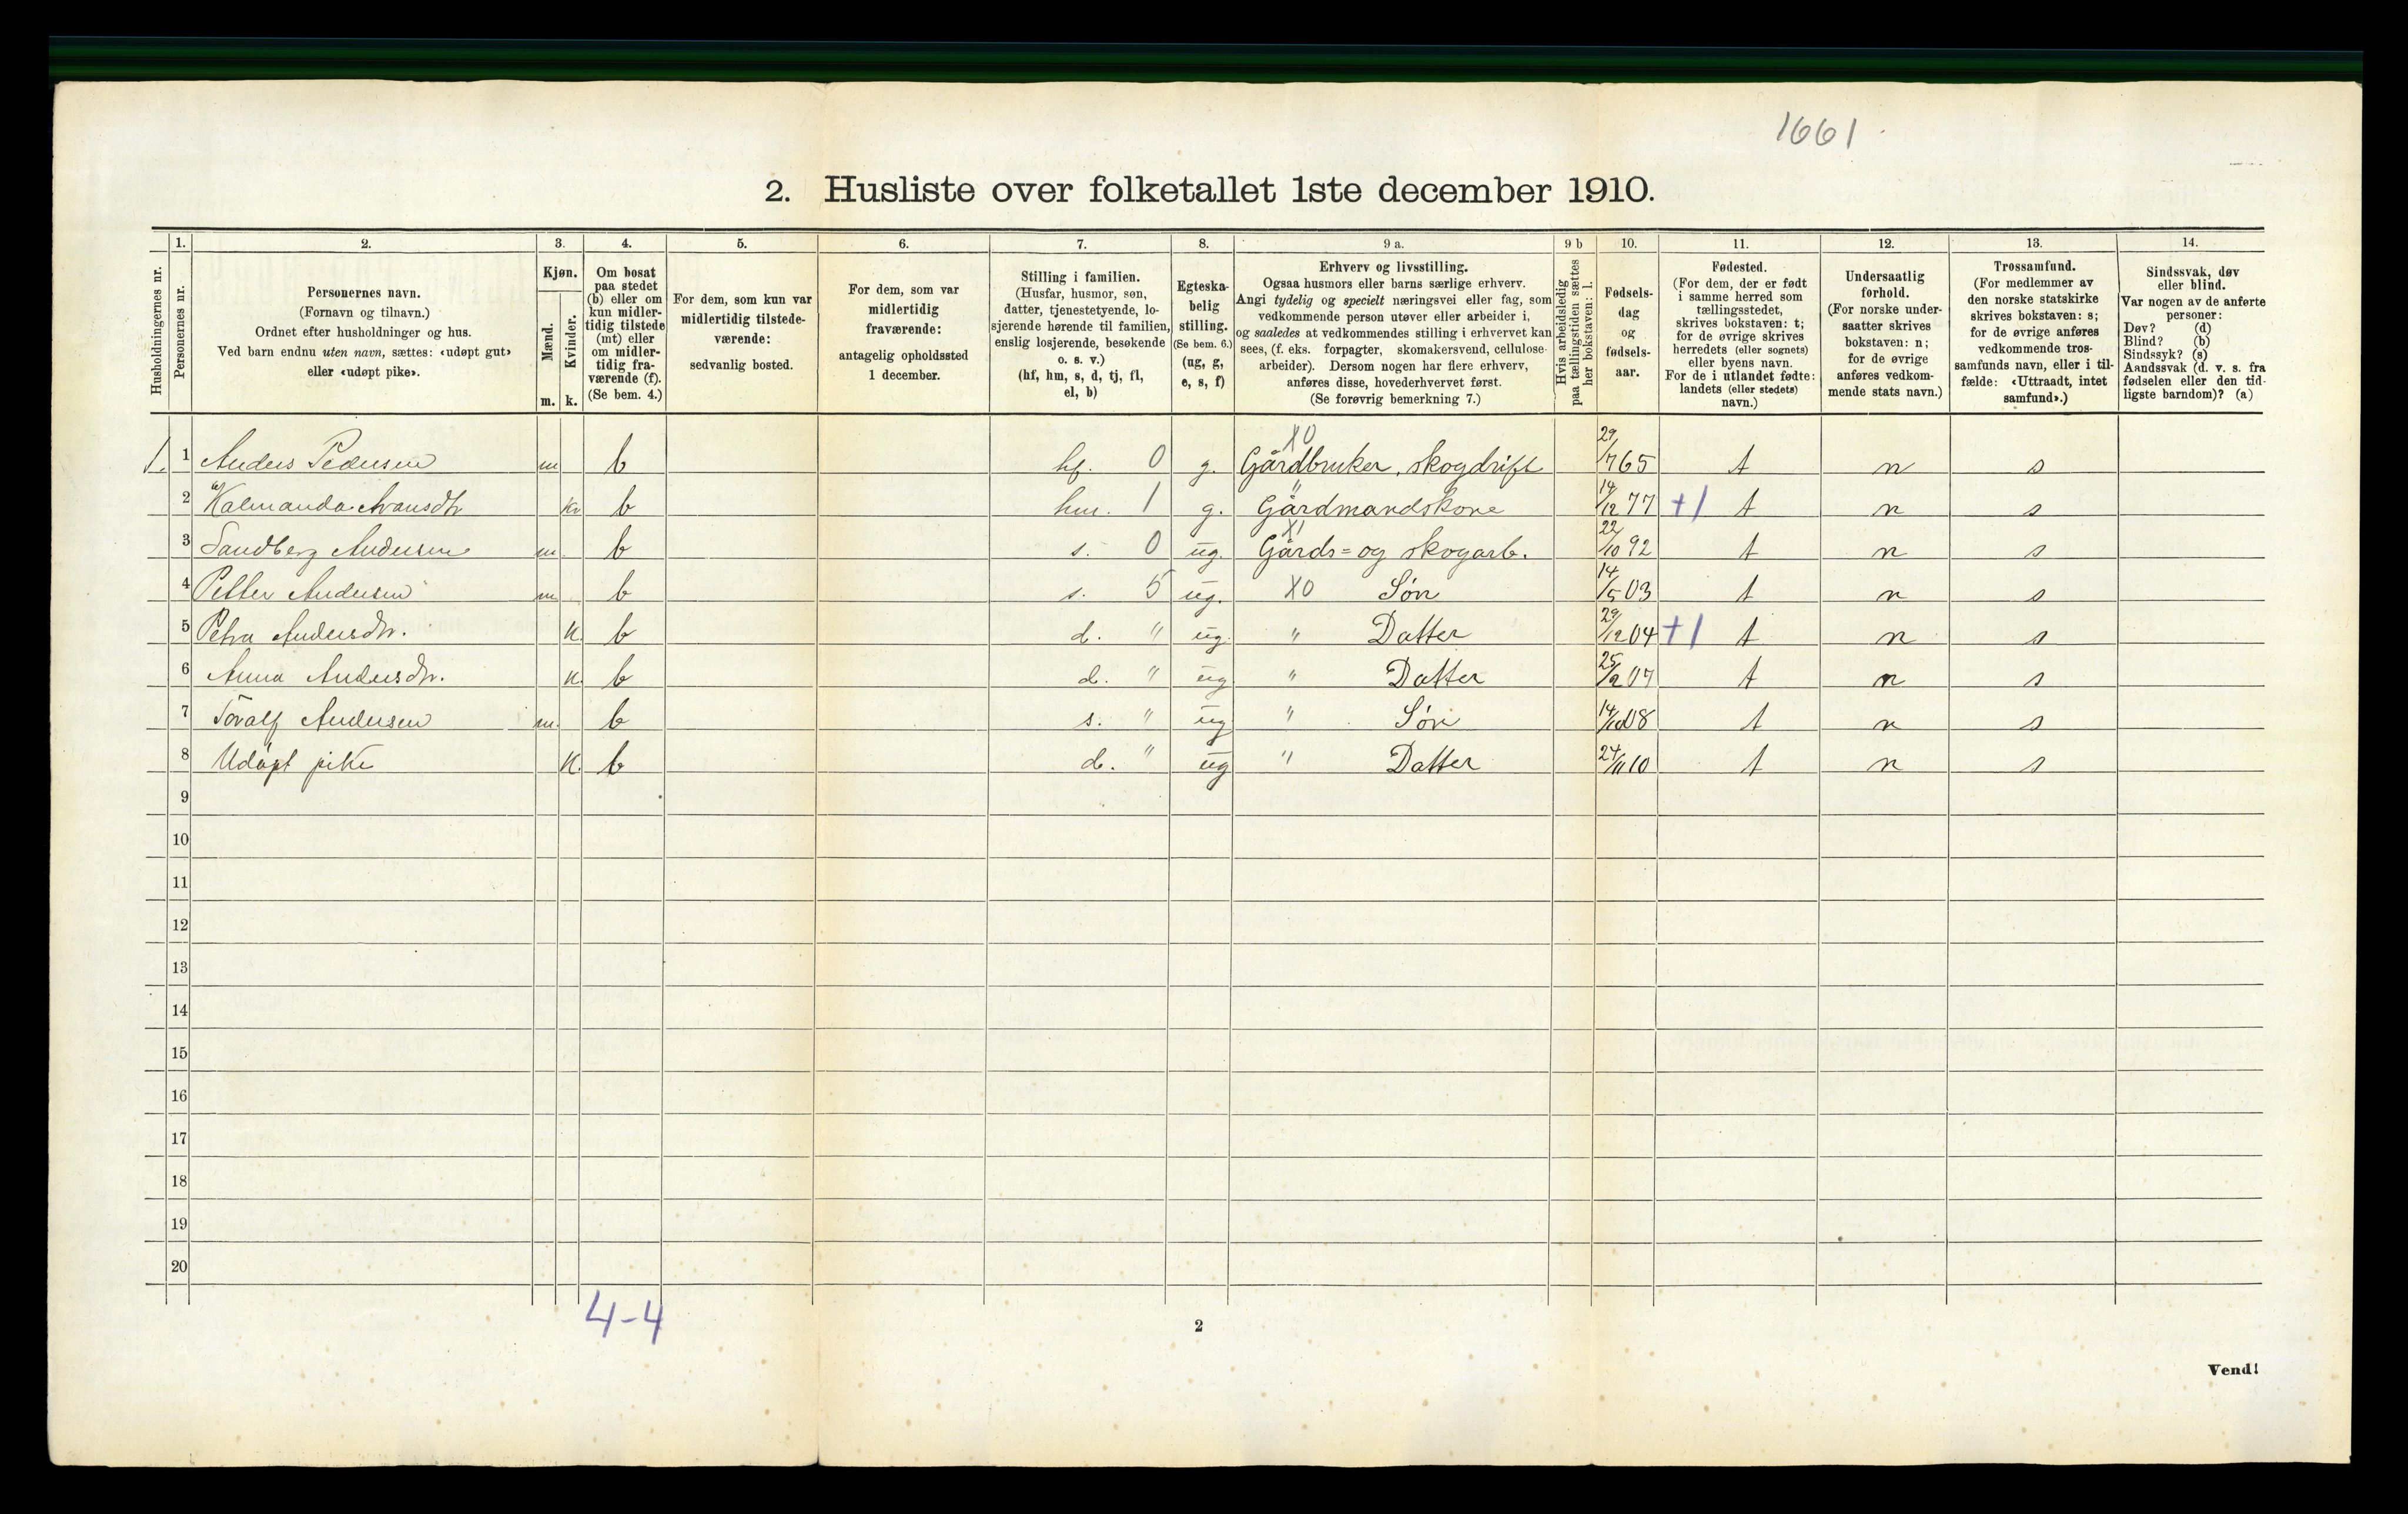 1661
2. Husliste over folketallet 1ste december 1910.
Husholdningernes nr.
1.
Personernes nr.
2.
Personernes navn.
(Fornavn og tilnavn.)
Ordnet efter husholdninger og hus.
Ved barn endnu uten navn, sættes: «udøpt gut»
eller «udøpt pike».
3.
Kjøn.
Mænd.
Kvinder.
m. k.
4.
Om bosat
paa stedet
(b) eller om
kun midler-
tidig tilstede
(mt) eller
om midler-
tidig fra-
værende (f).
(Se bem. 4.)
5.
For dem, som kun var
midlertidig tilstede-
værende:
sedvanlig bosted.
6.
For dem, som var
midlertidig
fraværende:
antagelig opholdssted
1 december.
7.
Stilling i familien.
(Husfar, husmor, søn,
datter, tjenestetyende, lo-
sjerende hørende til familien,
enslig losjerende, besøkende
o. s. v.)
(hf, hm, s, d, tj, fl,
el, b)
8.
Egteska-
belig
stilling.
(Se bem. 6.)
(ug, g,
e, s, f)
9 a.
Erhverv og livsstilling.
Ogsaa husmors eller barns særlige erhverv.
Angi tydelig og specielt næringsvei eller fag, som
vedkommende person utøver eller arbeider i,
og saaledes at vedkommendes stilling i erhvervet kan
sees, (f. eks. forpagter, skomakersvend, cellulose-
arbeider). Dersom nogen har flere erhverv,
anføres disse, hovederhvervet først.
(Se forøvrig bemerkning 7.)
9 b
Hvis arbeidsledig
paa tællingstiden sættes
her bokstaven: l.
10.
Fødsels-
dag
og
fødsels-
aar.
11.
Fødested.
(For dem, der er født
i samme herred som
tællingsstedet,
skrives bokstaven: t;
for de øvrige skrives
herredets (eller sognets)
eller byens navn.
For de i utlandet fødte:
landets (eller stedets)
navn.)
12.
Undersaatlig
forhold.
(For norske under-
saatter skrives
bokstaven: n;
for de øvrige
anføres vedkom-
mende stats navn.)
13.
Trossamfund.
(For medlemmer av
den norske statskirke
skrives bokstaven: s;
for de øvrige anføres
vedkommende tros-
samfunds navn, eller i til-
fælde: «Uttraadt, intet
samfund».)
14.
Sindssvak, døv
eller blind.
Var nogen av de anførte
personer:
Døv? (d)
Blind? (b)
Sindssyk? (s)
Aandssvak (d. v. s. fra
fødselen eller den tid-
ligste barndom)? (a)
1. 1 Anders Pedersen m b hf. 0 g. X0 Gårdbruker, skogdrift 29/7 65 t n s
2 Kalmanda k b hm. 1 g. " Gårdmandskone 14/12 77 +1 t n s
3 Sandberg Andersen m. b s. 0 ug. X1 Gårds= og skogarb. 22/10 92 t n s
4 Petter Andersen m b s. 5 ug. X0 Søn 14/5 03 t n s
5 Petra Andersdtr. k. b d. " ug. " Datter 29/12 04 +1 t n s
6 Anna Andersdtr. k. b d. " ug " Datter 25/2 07 t n s
7 Toralf Andersen m. b s. " ug " Søn 14/10 08 t n s
8 Udøpt pike k. b d. " ug " Datter 24/11 10 t n s
9
10
11
12
13
14
15
16
17
18
19
20
4-4
2
Vend!